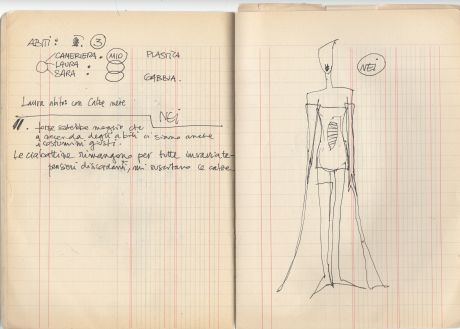 ABITI: 3
CAMERIERA. MIO PLASTICA
LAURA
SARA GABBIA.
Laura abito con calze nere
NEI
forse sarebbe meglio che
a seconda degli abiti ci siano anche
i costumini giusti.
Le ciabattine rimangono per tutte invariate
pensieri discordanti, mi suscitano le calze
NEI